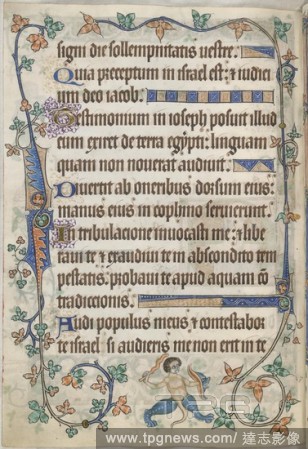 signi die sollempnitatis uestre.
Quia preceptum in israel est: ⁊ iudici
um deo iacob.
Testimonium in ioseph posuit illud
cum exiret de terra egypti: linguam
quam non nouerat audiuit.
Diuertit ab oneribus dorsum eius:
manus eius in cophino seruierunt.
In tribulacione inuocasti me: ⁊ libe
raui te ⁊ exaudiui te in abscondito tem
pestatis. probaui te apud aquam cō
tradiccionis.
Audi populus meus ⁊ contestabor
te israel si audieris me non erit in te
www.tpgnews.com/ 達志影像